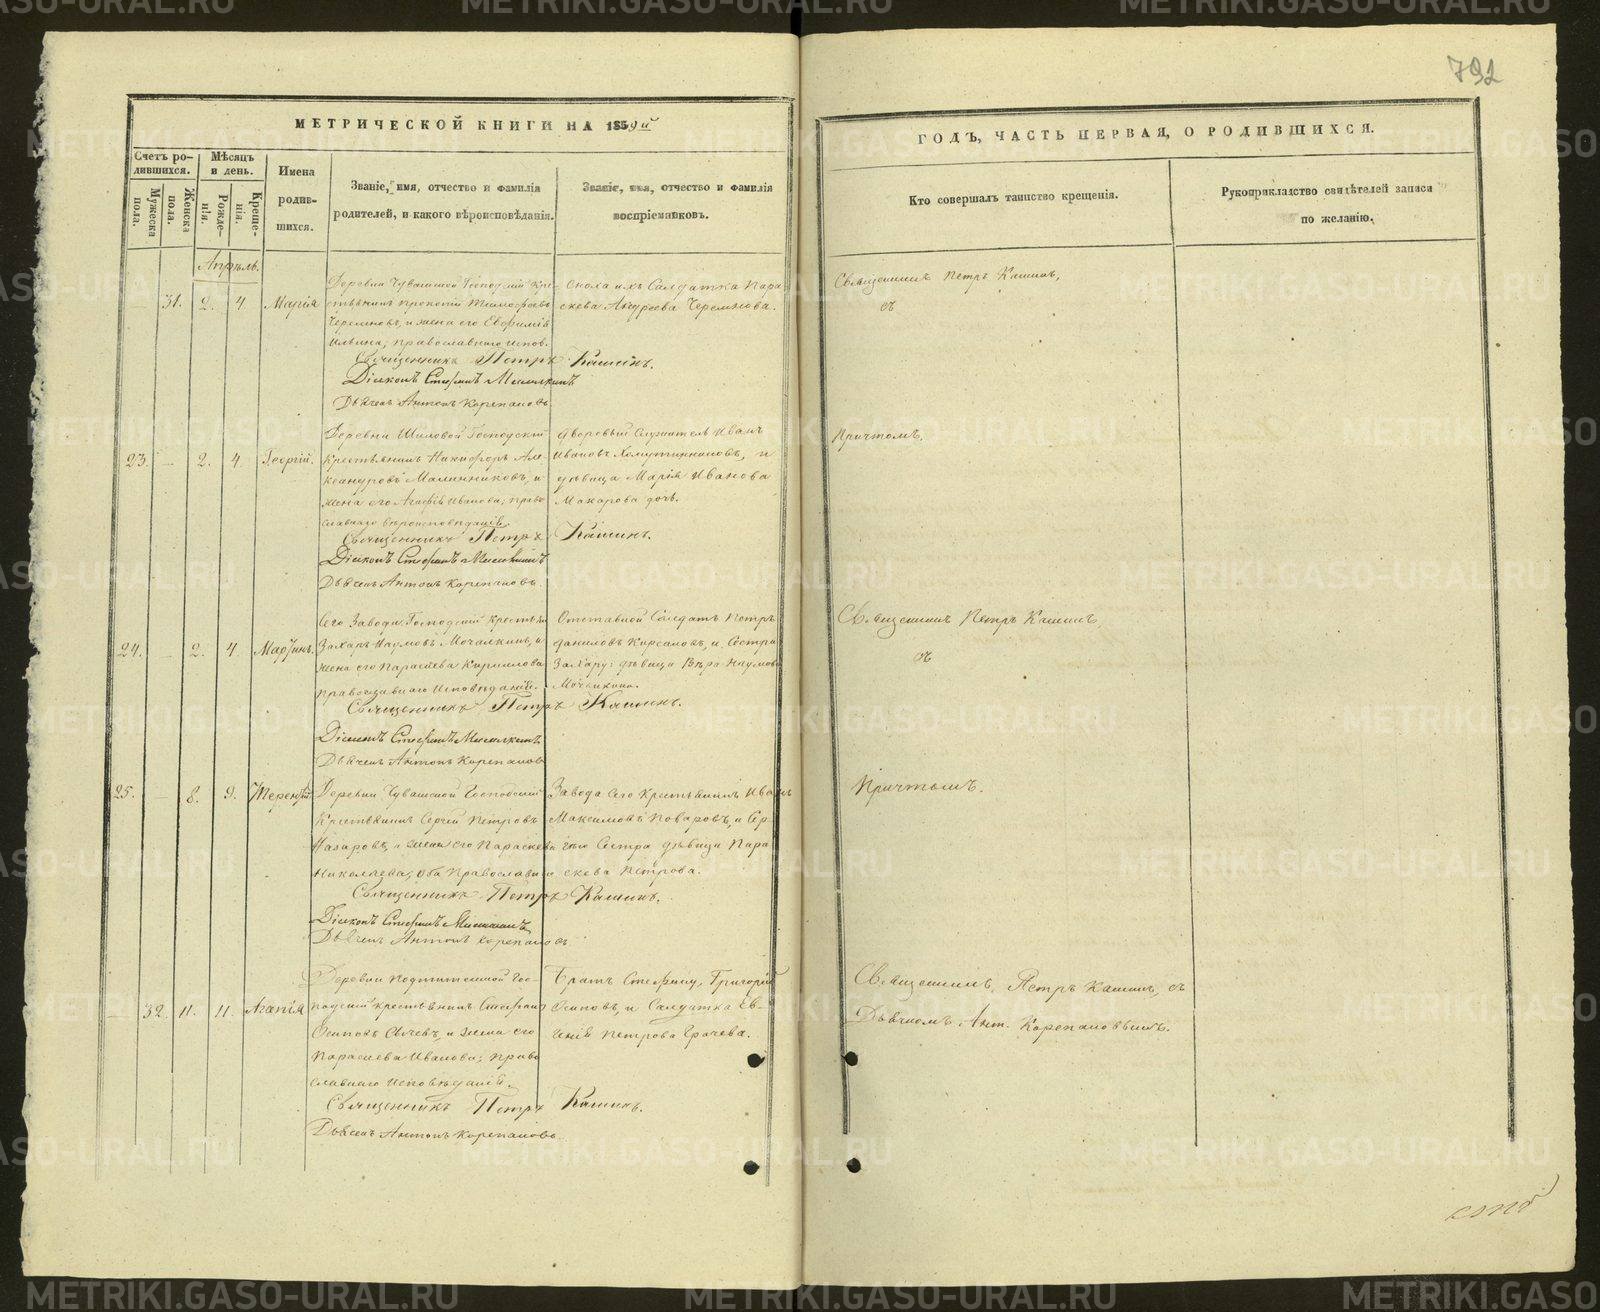 792
МЕТРИЧЕСКОЙ КНИГИ НА 1859й
ГОДЪ, ЧАСТЬ ПЕРВАЯ, О РОДИВШИХСЯ.
Счетъ родившихся.
Мужеска пола.
Женска пола.
Мѣсяцъ и день.
Рожденія.
Крещенія.
Имена родившихся.
Званіе, имя, отчество и фамилія родителей, и какого вѣроисповѣданія.
Званіе, имя, отчество и фамилія воспріемниковъ.
Кто совершалъ таинство крещенія.
Рукоприкладство свидѣтелей записи по желанію.
Апрѣль.
31. 2. 4. Марія
Деревни Чувашской Господскій Кре-
стьянинъ Прокопій Тимофеевъ
и жена его Евфимія
Ильина, православнаго испов.
Сноха ихъ Солдатка Пара-
скева Андреева
Священникъ Петръ Кашинъ,
съ
Священникъ Петръ Кашинъ.
Діаконъ Стефанъ
Дьячекъ Антонъ Корепановъ.
23. — 2. 4. Георгій.
Деревни Шиловой Господскій
крестьянинъ Никифоръ Але-
ксандровъ Малинниковъ, и
жена его Агафія Иванова, право-
славнаго вѣроисповѣданія.
Дворовый Служитель Иванъ
Ивановъ и
дѣвица Марія Иванова
Макарова дочь.
Причтомъ.
Священникъ Петръ Кашинъ.
Діаконъ Стефанъ
Дьячекъ Антонъ Корепановъ.
24. — 2. 4. Мартинъ.
Сего Завода Господскій крестьян.
Захаръ Наумовъ Мочалкинъ, и
жена его Параскева Кирилова
православнаго исповѣданія.
Отставной Солдатъ Петръ
Даниловъ Кирсановъ, и Сестра
Захару: дѣвица Вѣра Наумова
Священникъ Петръ Кашинъ,
съ
Священникъ Петръ Кашинъ.
Діаконъ Стефанъ
Дьячекъ Антонъ Корепановъ
25. — 8. 9. Терентій
Деревни Чувашской Господскій
Крестьянинъ Сергей Петровъ
Назаровъ, и жена его Параскева
Николаева, оба Православнаго
Завода Сего Крестьянинъ Иванъ
Максимовъ Поваровъ, и Сер-
гѣю Сестра дѣвица Пара-
скева Петрова.
Причтомъ.
Священникъ Петръ Кашинъ.
Діаконъ Стефанъ
Дьячекъ Антонъ Корепановъ
— 32. 11. 11. Агапія
Деревни Гос-
подскій крестьянинъ Стефанъ
Осиповъ Сычевъ, и жена его
Параскева Иванова; право-
славнаго исповѣданія.
Братъ Стефану, Григорій
Осиповъ, и Солдатка Ев-
генія Петрова Грачева.
Священникъ Петръ Кашинъ, съ
Дьячкомъ Ант. Корепановымъ.
Священникъ Петръ Кашинъ.
Дьячекъ Антонъ Корепановъ.
METRIKI.GASO-URAL.RU